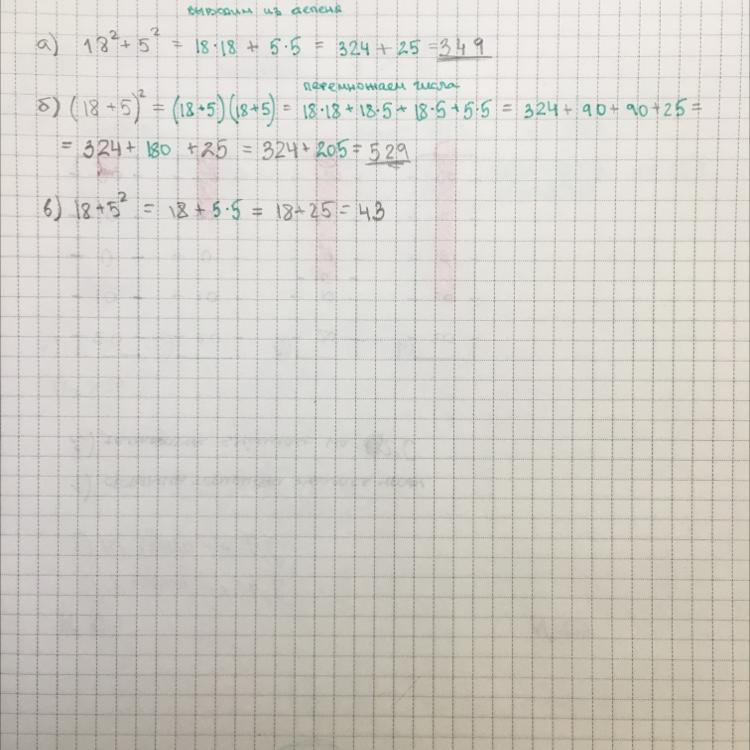 выводим из степеня
а) 18² + 5² = 18·18 + 5·5 = 324 + 25 = 349
перемножаем числа
б) (18 + 5)² = (18+5)(18+5) = 18·18 + 18·5 + 18·5 + 5·5 = 324 + 90 + 90 + 25 =
= 324 + 180 + 25 = 324 + 205 = 529
в) 18 + 5² = 18 + 5·5 = 18 + 25 = 43